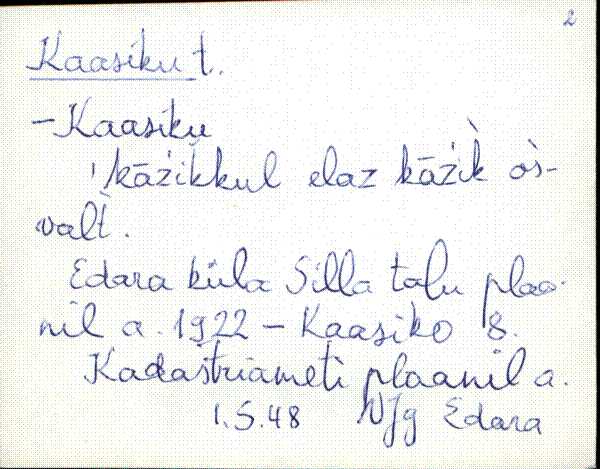 2
Kaasiku t.
– Kaasiku
'kāžikkul elaz kāžìk òs-
valt̀.
Edara küla Silla talu plaa-
nil a. 1922 – Kaasiko 8.
Kadastriameti plaanil a.
1.5.48 NJg Edara